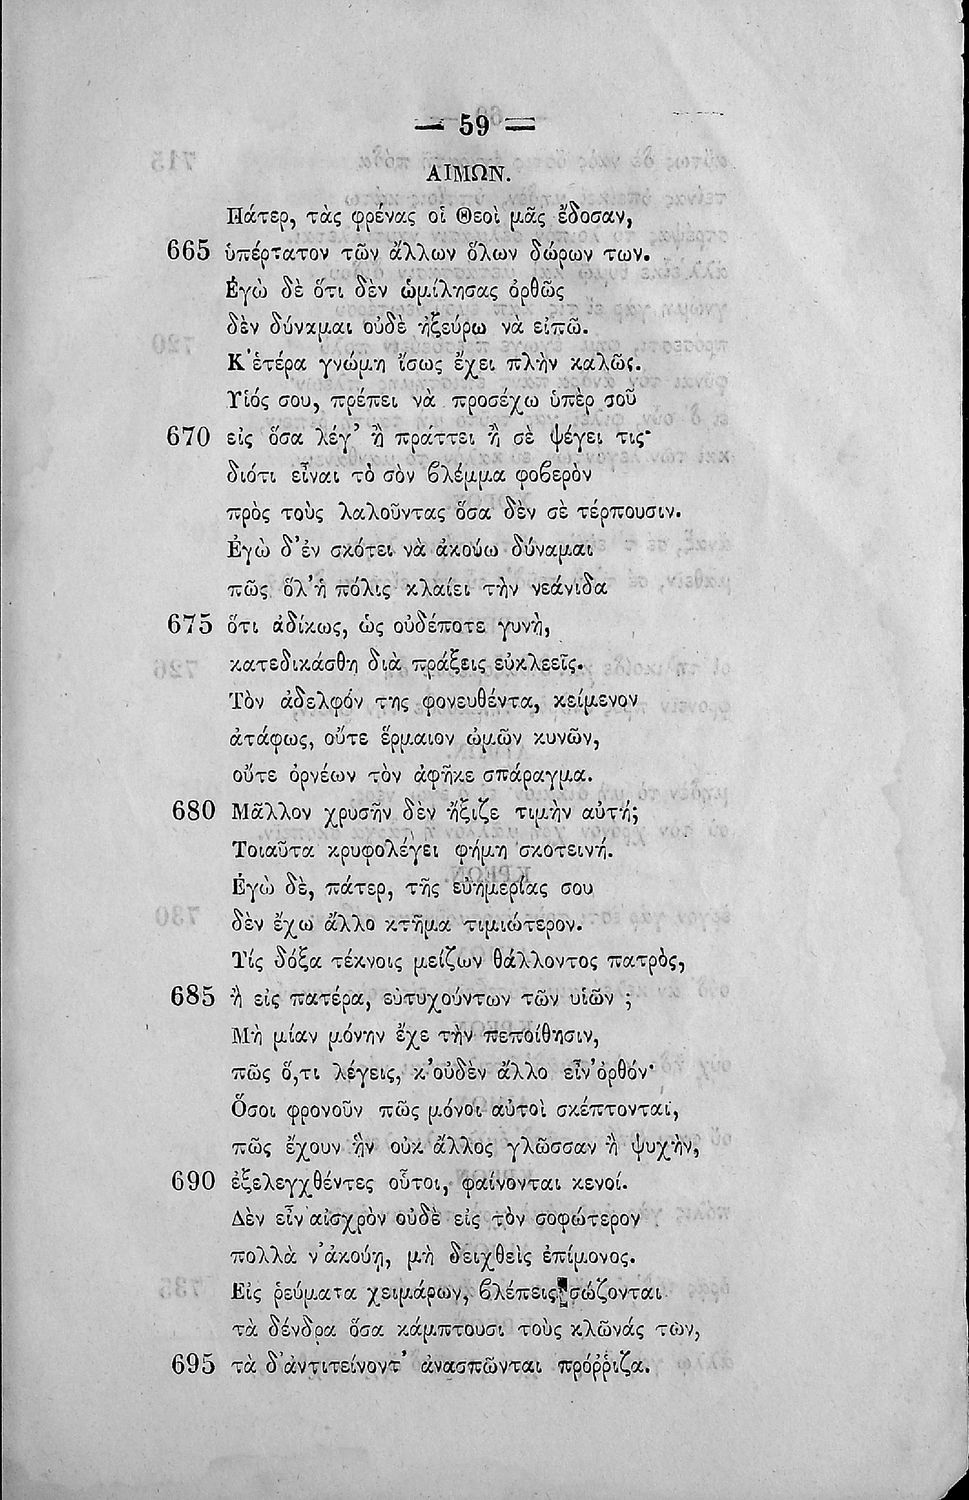 — 59 —
ΑΙΜΩΝ.
Πάτερ, τὰς φρένας οἱ Θεοὶ μᾶς ἔδοσαν,
665 ὑπέρτατον τῶν ἄλλων ὅλων δώρων των.
Ἐγὼ δὲ ὅτι δὲν ὡμίλησας ὀρθῶς
δὲν δύναμαι οὐδὲ ἠξεύρω νὰ εἰπῶ.
Κ’ ἑτέρα γνώμη ἴσως ἔχει πλὴν καλῶς.
Υἱός σου, πρέπει νὰ προσέχω ὑπὲρ σοῦ
670 εἰς ὅσα λέγ’ ἢ πράττει ἢ σὲ ψέγει τις·
διότι εἶναι τὸ σὸν βλέμμα φοβερὸν
πρὸς τοὺς λαλοῦντας ὅσα δὲν σὲ τέρπουσιν.
Ἐγὼ δ’ ἐν σκότει νὰ ἀκούω δύναμαι
πῶς ὅλ’ ἡ πόλις κλαίει τὴν νεάνιδα
675 ὅτι ἀδίκως, ὡς οὐδέποτε γυνὴ,
κατεδικάσθη διὰ πράξεις εὐκλεεῖς.
Τὸν ἀδελφόν της φονευθέντα, κείμενον
ἀτάφως, οὔτε ἕρμαιον ὠμῶν κυνῶν,
οὔτε ὀρνέων τὸν ἀφῆκε σπάραγμα.
680 Μᾶλλον χρυσῆν δὲν ἤξιζε τιμὴν αὐτή;
Τοιαῦτα κρυφολέγει φήμη σκοτεινή.
Ἐγὼ δὲ, πάτερ, τῆς εὐημερίας σου
δὲν ἔχω ἄλλο κτῆμα τιμιώτερον.
Τίς δόξα τέκνοις μείζων θάλλοντος πατρὸς,
685 ἢ εἰς πατέρα, εὐτυχούντων τῶν υἱῶν ;
Μὴ μίαν μόνην ἔχε τὴν πεποίθησιν,
πῶς ὅ,τι λέγεις, κ’ οὐδὲν ἄλλο εἶν’ ὀρθόν·
Ὅσοι φρονοῦν πῶς μόνοι αὐτοὶ σκέπτονται,
πῶς ἔχουν ἣν οὐκ ἄλλος γλῶσσαν ἢ ψυχὴν,
690 ἐξελεγχθέντες οὗτοι, φαίνονται κενοί.
Δὲν εἶν’ αἰσχρὸν οὐδὲ εἰς τὸν σοφώτερον
πολλὰ ν’ ἀκούῃ, μὴ δειχθεὶς ἐπίμονος.
Εἰς ῥεύματα χειμάρων, βλέπεις, σώζονται
τὰ δένδρα ὅσα κάμπτουσι τοὺς κλῶνάς των,
695 τὰ δ’ ἀντιτείνοντ’ ἀνασπῶνται πρόῤῥιζα.